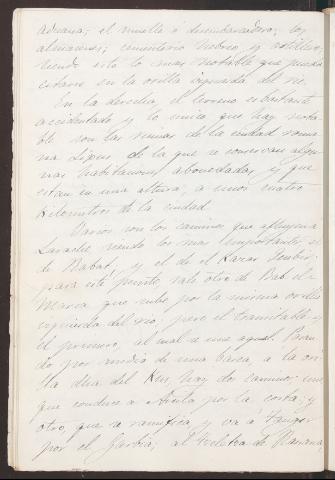 aduana; el muelle ó desembarcadero; los
almacenes; cementerio hebreo y
siendo esto lo mas notable que puede
citarse en la orilla izquierda del rio.
En la derecha el terreno es bastante
accidentado y lo unico que hay nota-
ble son las ruinas de la ciudad roma-
na Lixus de la que se conservan algu-
nas habitaciones abovedadas y que
estan en una altura, a unos cuatro
kilometros de la ciudad.
Varios son los caminos que afluyen a
Larache, siendo los mas importantes el
de Rabat, y el de el Kazar Kevir;
para este punto, sale otro de Bab el
Marca que sube por la misma orilla
izquierda del rio; pero el transitable es
el primero, al cual se une aquel. Pasan-
do por medio de una barca, a la ori-
lla dra del Kus, hay dos caminos: uno
que conduce a Arcila por la costa; y
otro, que se ramifica y va á Tanger
por el Garbia; al de Raisana,